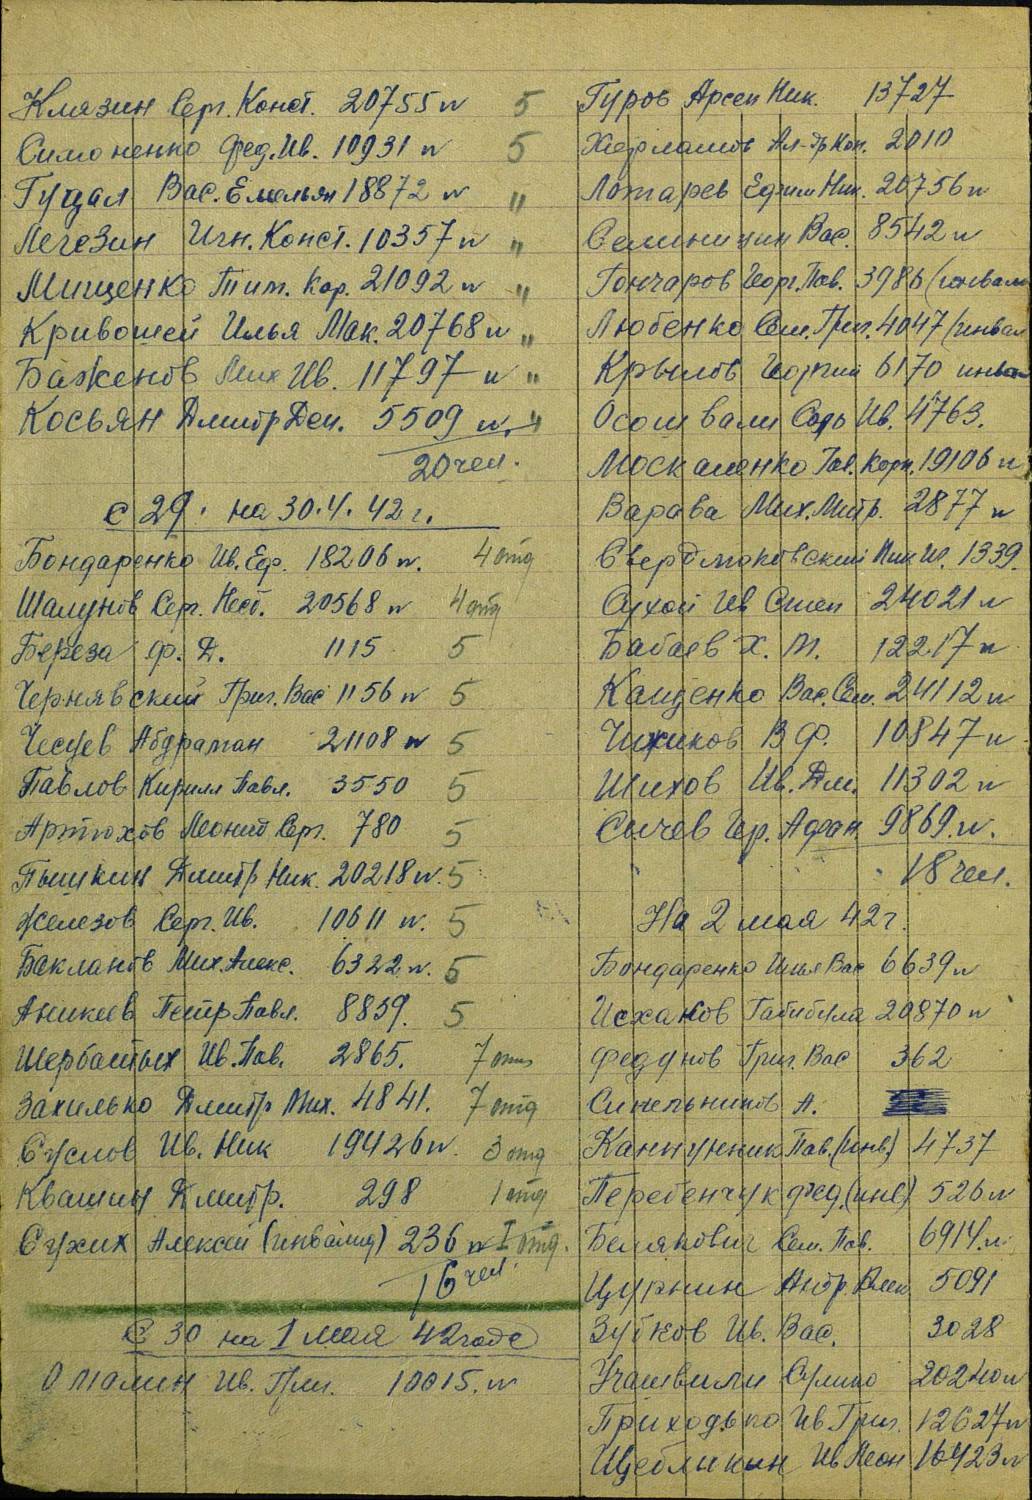 Клязин Серг. Конст. 20755 п 5
Симоненко Фед. Ив. 10931 п 5
Гуцал Вас. Емельян 18872 п "
Легезин Игн. Конст. 10357 п "
Мищенко Тим. Кар. 21092 п "
Кривошей Илья Мак. 20768 п "
Баженов Мих Ив. 11797 п "
Косьян Дмитр Дем. 5509 п. "
20 чел.
с 29. на 30.4.42 г.
Бондаренко Ив. Еф. 18206 п. 4 отд
Шалунов Серг. 20568 п 4 отд
Береза Ф. Д. 1115 5
Чернявский Григ. Вас 1156 п 5
Чесуев Абдраман 21108 п 5
Павлов Кирилл Павл. 3550 5
Артюхов Леонид Серг. 780 5
Пышкин Дмитр Ник. 20218 п. 5
Железов Серг. Ив. 10611 п. 5
Бакланов Мих. Алекс. 6322 п. 5
Аникеев Петр Павл. 8839. 5
Щербатых Ив. Пав. 2865. 7 отд
Захилько Дмитр Мих. 4841. 7 отд
Суслов Ив. Ник 19426 п. 3 отд
Квашин Дмитр. 298 1 отд
Сухих Алексей (инвалид) 236 п I отд.
16 чел.
С 30 на 1 мая 42 годе
Оталин Ив. Григ. 10015. п
Гуров Арсен Ник. 13727
Харламов Ал-др Кон. 2010
Лотарев Ефим Ник. 20756 п
Селиницин Вас. 8542 п
Гончаров Георг. Пав. 3986 (инвали
Любенко Сем. Григ. 4047 (инвал
Крылов Георгий 6170 инвал
Ив. 4763.
Москаленко Гав. Корн. 19106 п
Варава Мих. Митр. 2877 п
Ник И. 1339.
Сухой Ив Степ 24021 п
Бабаев Х. М. 12217 п
Кащенко Вас. Сем. 24112 п
Чижиков В Ф. 10847 п
Шихов Ив. Дм. 11302 п
Сычев Гр. Афан. 9869. п.
18 чел.
На 2 мая 42 г.
Бондаренко Илья Вас 6639 п
Исханов Габибула 20870 п
Федунов Григ. Вас 362
Синельников А.
Канунник Пав. (инв) 4737
Перебенчук Фед. (инв) 526 п
Белякович Сем. Пав. 6914. п
Цурнин Андр. Алек 5091
Зубков Ив. Вас. 3028
Учашвили Сулико 20240 п
Приходько Ив Григ. 12627 п
Щебликин Ив Леон 16423 п